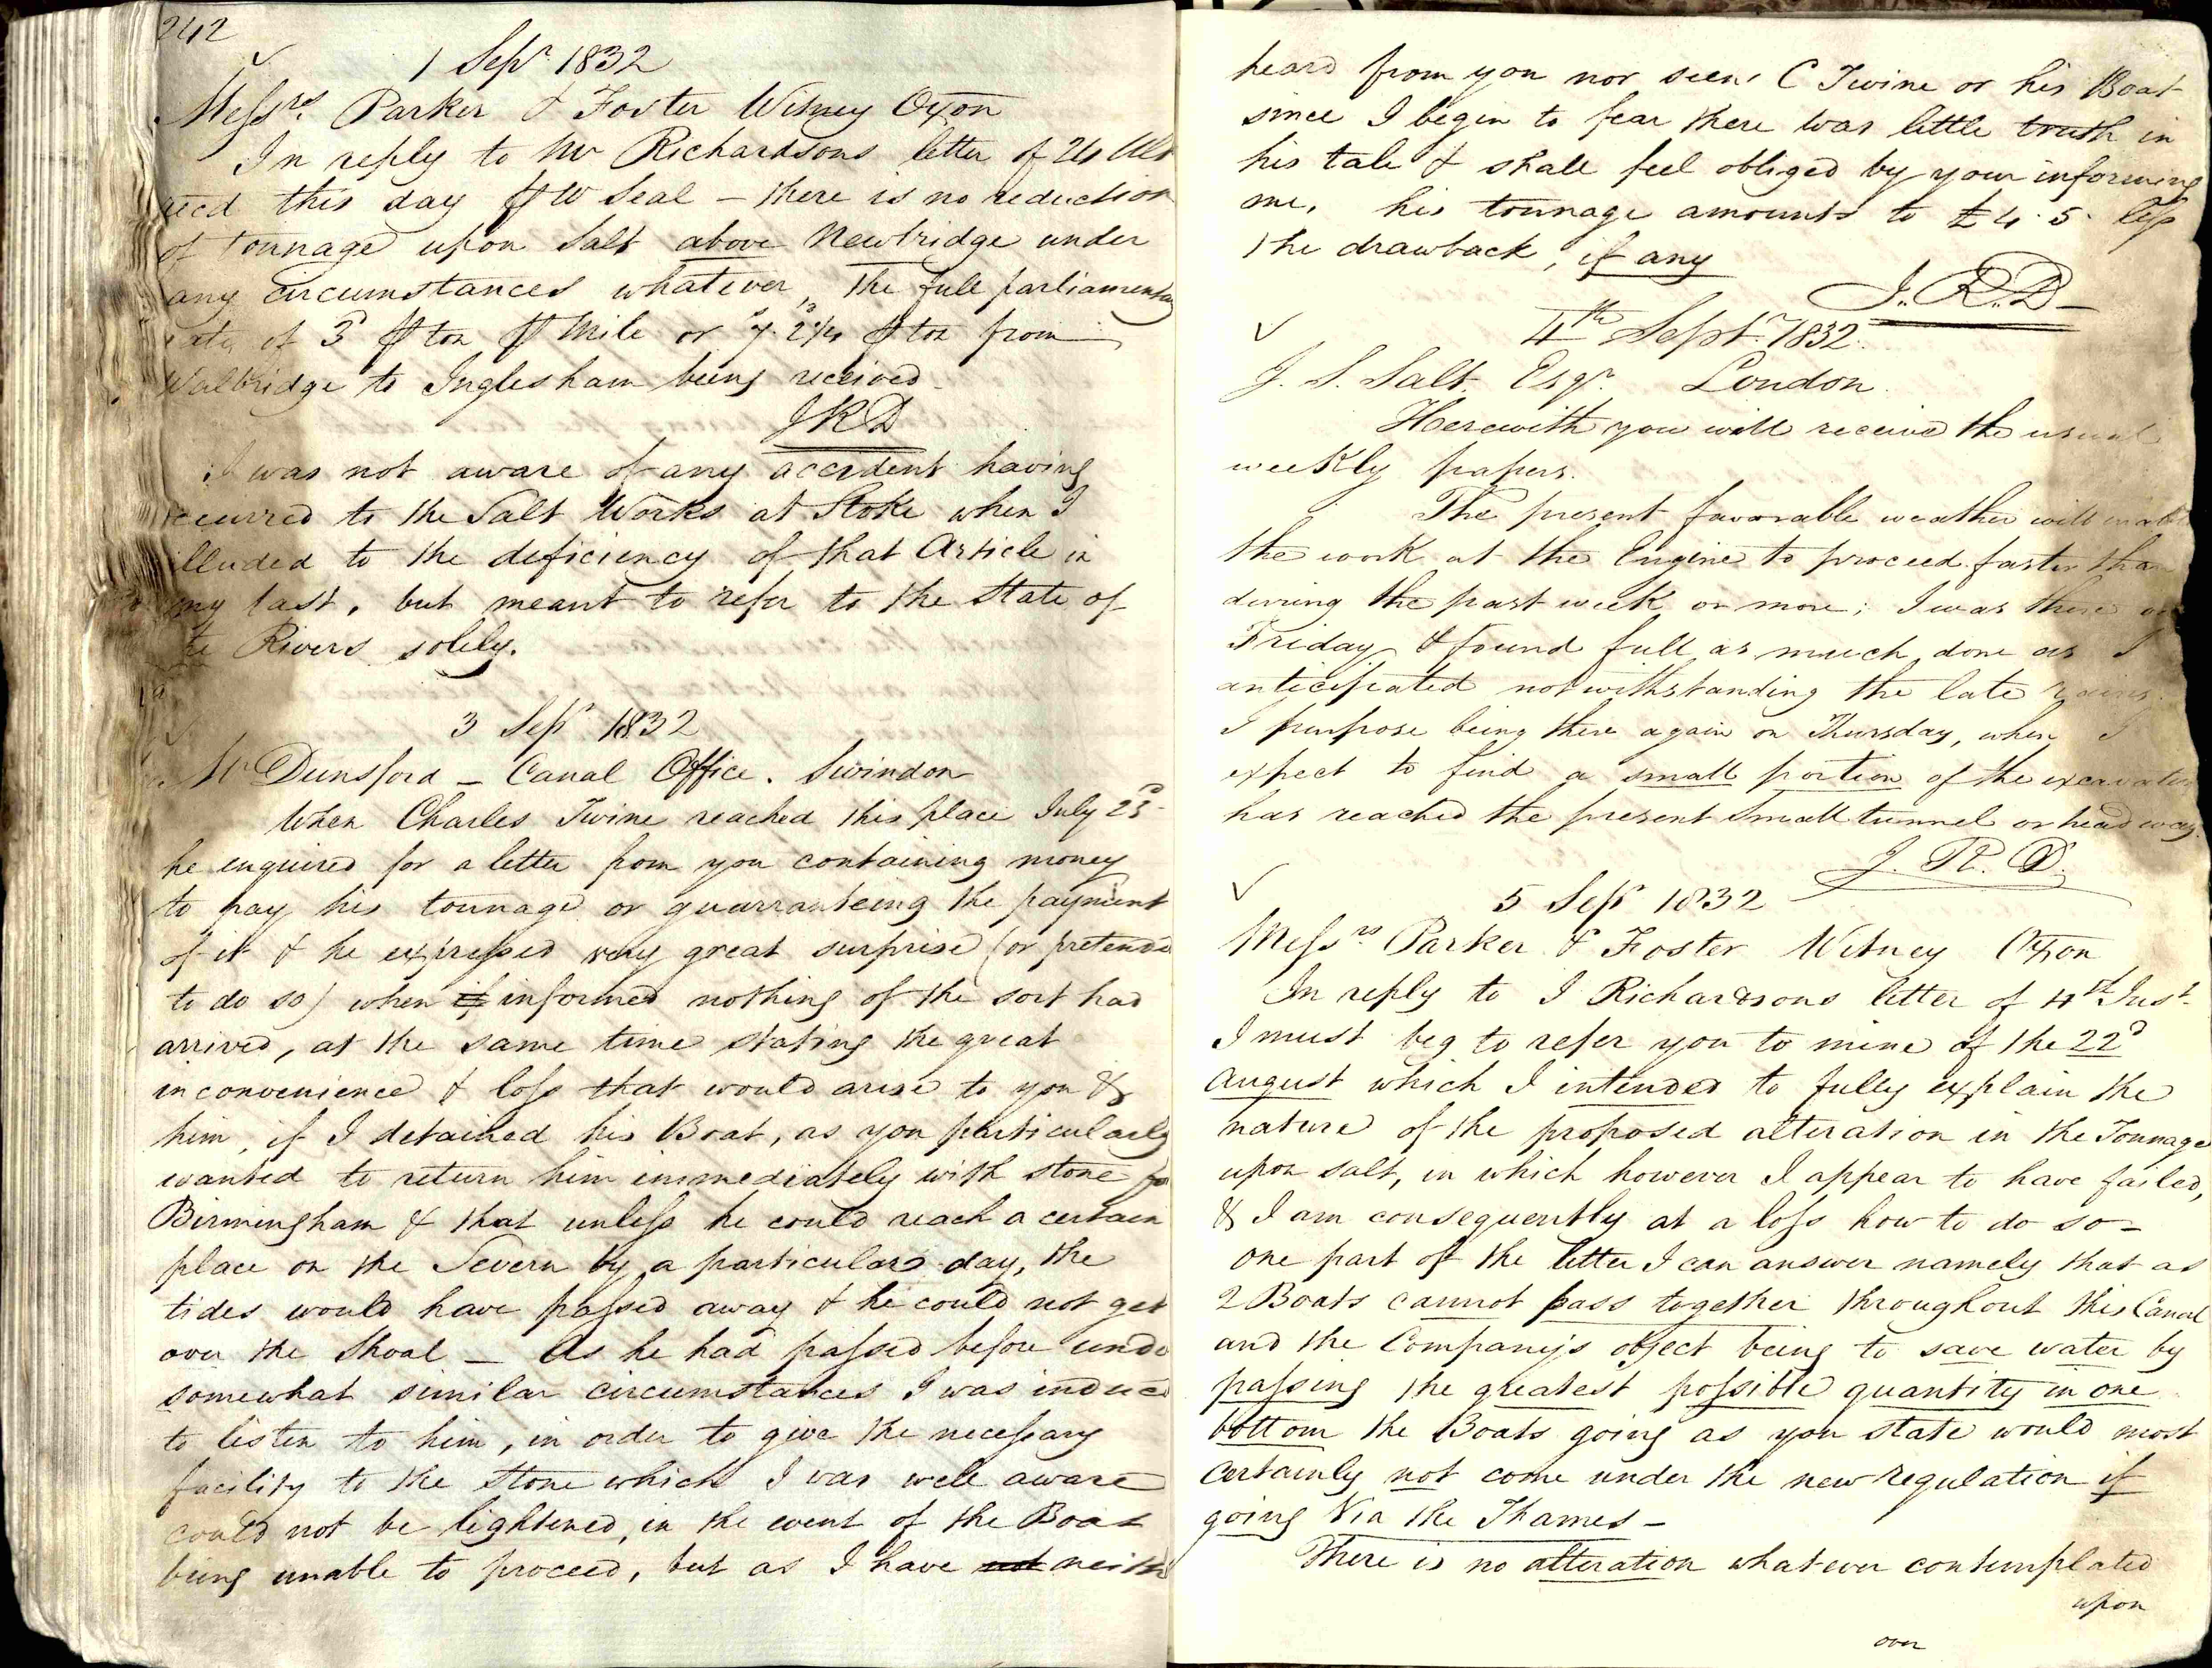 242
1 Sepr 1832
Messrs. Parker & Foster Witney Oxon
In reply to Mr Richardsons letter of 24 Ult
recd this day ₱ W Seal — there is no reduction
of tonnage upon Salt above Newbridge under
any circumstances whatever, the full parliamentary
rate of 3d ₱ ton ₱ Mile or 7s. 2¼d ₱ ton from
Walbridge to Inglesham being received
JRD
I was not aware of any accident having
occurred to the Salt Works at Stoke when I
alluded to the deficiency of that Article in
my last, but meant to refer to the State of
the Rivers solely.
3 Sepr 1832
Mr Dunsford — Canal Office. Swindon
When Charles Twine reached this place July 23d
he enquired for a letter from you containing money
to pay his tonnage or guarranteeing the payment
of it & he expressed very great surprise (or pretended
to do so) when if informed nothing of the sort had
arrived, at the same time stating the great
inconvenience & loss that would arise to you &
him, if I detained his Boat, as you particularly
wanted to return him immediately with stone for
Birmingham & that unless he could reach a certain
place on the Severn by a particular day, the
tides would have passed away & he could not get
over the Shoal — As he had passed before under
somewhat similar circumstances I was induced
to listen to him, in order to give the necessary
facility to the Stone which I was well aware
could not be lightened, in the event of the Boat
being unable to proceed, but as I have not neither
heard from you nor seen C Twine or his Boat
since I begin to fear there was little truth in
his tale & shall feel obliged by your informing
me, his tonnage amounts to £4.5. less
the drawback, if any
J.R.D—
4th Septr. 1832.
J. S. Salt. Esqr. London.
Herewith you will receive the usual
weekly papers.
The present favorable weather will enable
the work at the Engine to proceed faster than
during the past week or more; I was there on
Friday & found full as much done as I
anticipated notwithstanding the late rains.
I purpose being there again on Thursday, when I
expect to find a small portion of the excavation
has reached the present small tunnel or head way.
J. R. D.
5 Sepr 1832
Messrs. Parker & Foster Witney Oxon
In reply to J Richardsons letter of 4th Inst.
I must beg to refer you to mine of the 22d
August which I intended to fully explain the
nature of the proposed alteration in the Tonnage
upon salt, in which however I appear to have failed,
& I am consequently at a loss how to do so—
One part of the letter I can answer namely that as
2 Boats cannot pass together throughout this Canal
and the Company's object being to save water by
passing the greatest possible quantity in one
bottom the Boats going as you state would most
Certainly not come under the new regulation if
going Via the Thames—
There is no alteration whatever contemplated
upon
over